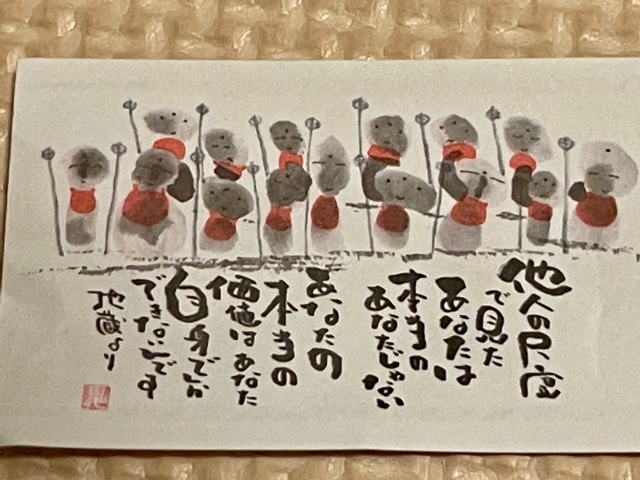 他人の尺度
で見た
あなたは
本当の
あなたじゃない
あなたの
本当の
価値はあなた
自身でしか
できないんです
地蔵より